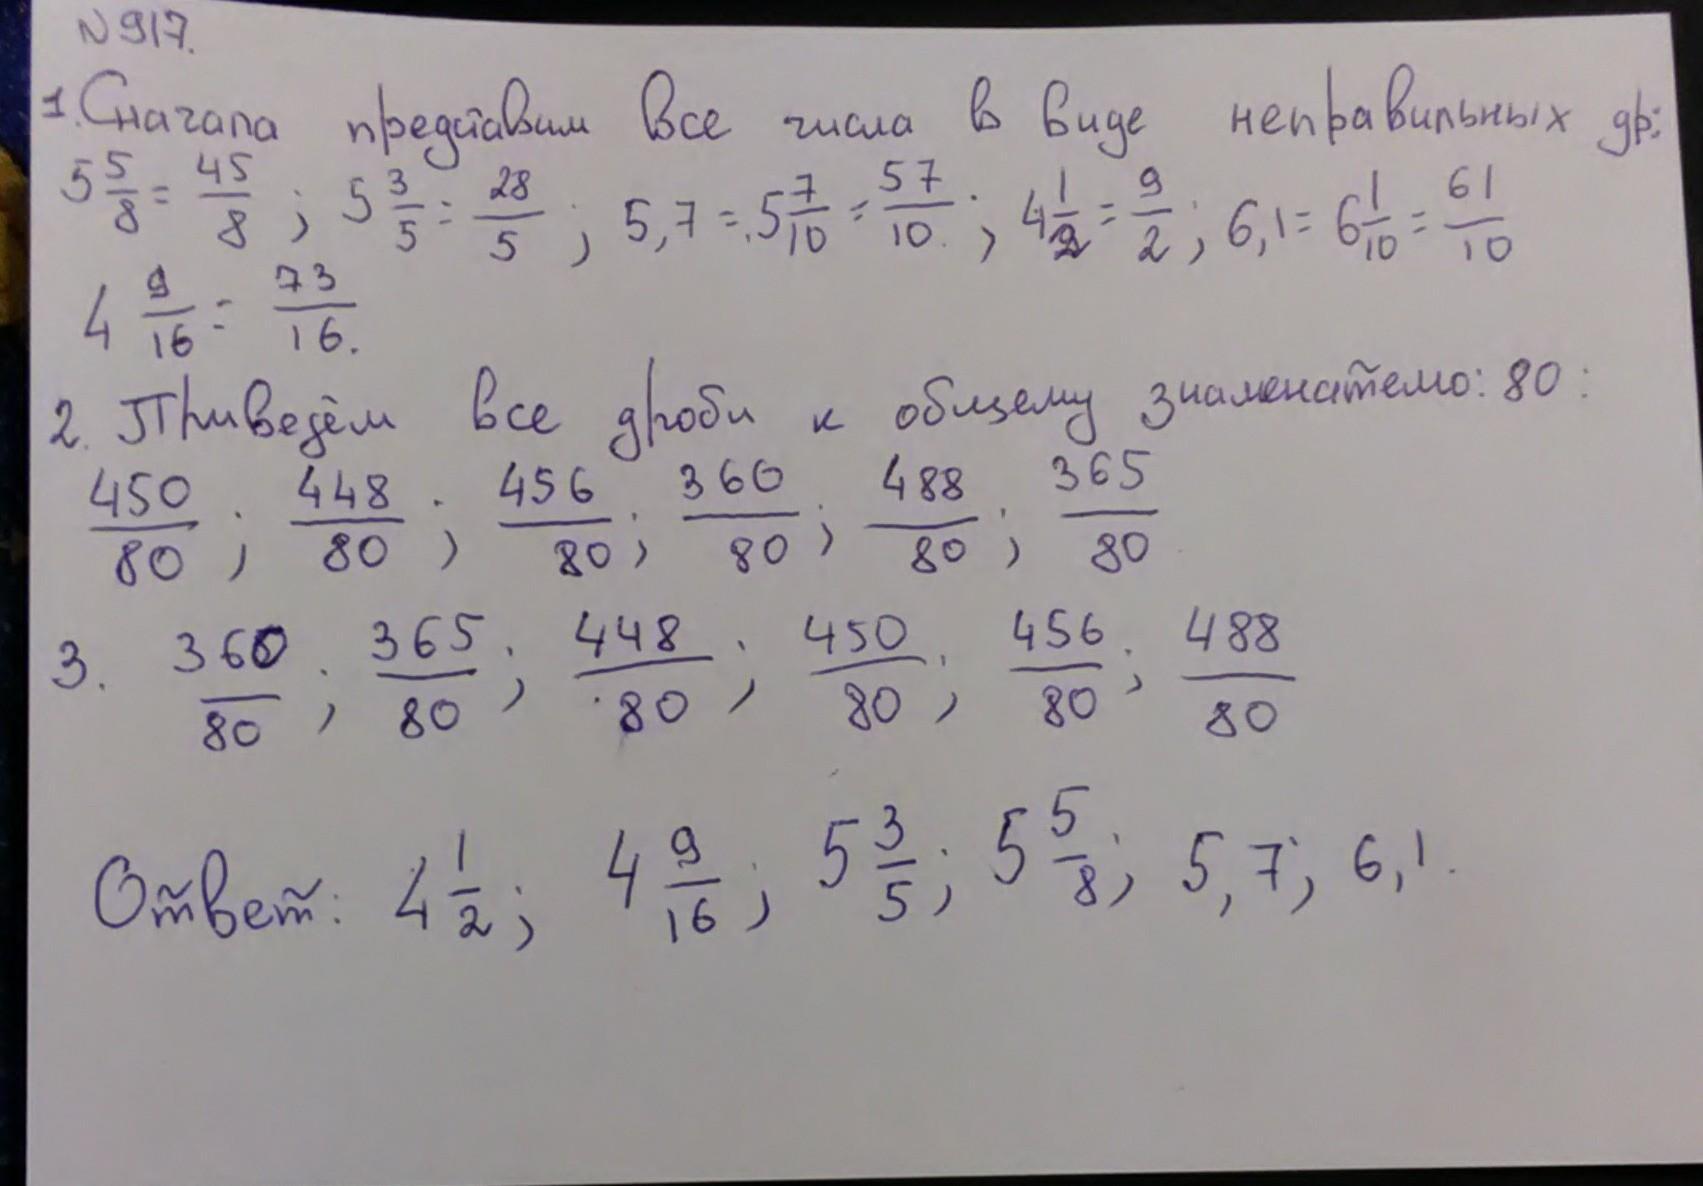 N917.
1. Сначала представим все числа в виде неправильных др:
5 5/8 = 45/8 ; 5 3/5 = 28/5 ; 5,7 = 5 7/10 = 57/10 ; 4 1/2 = 9/2 ; 6,1 = 6 1/10 = 61/10
4 9/16 = 73/16.
2. Приведём все дроби к общему знаменателю: 80 :
450/80 ; 448/80 ; 456/80 ; 360/80 ; 488/80 ; 365/80
3. 360/80 ; 365/80 ; 448/80 ; 450/80 ; 456/80 ; 488/80
Ответ: 4 1/2 ; 4 9/16 ; 5 3/5 ; 5 5/8 ; 5,7 ; 6,1.